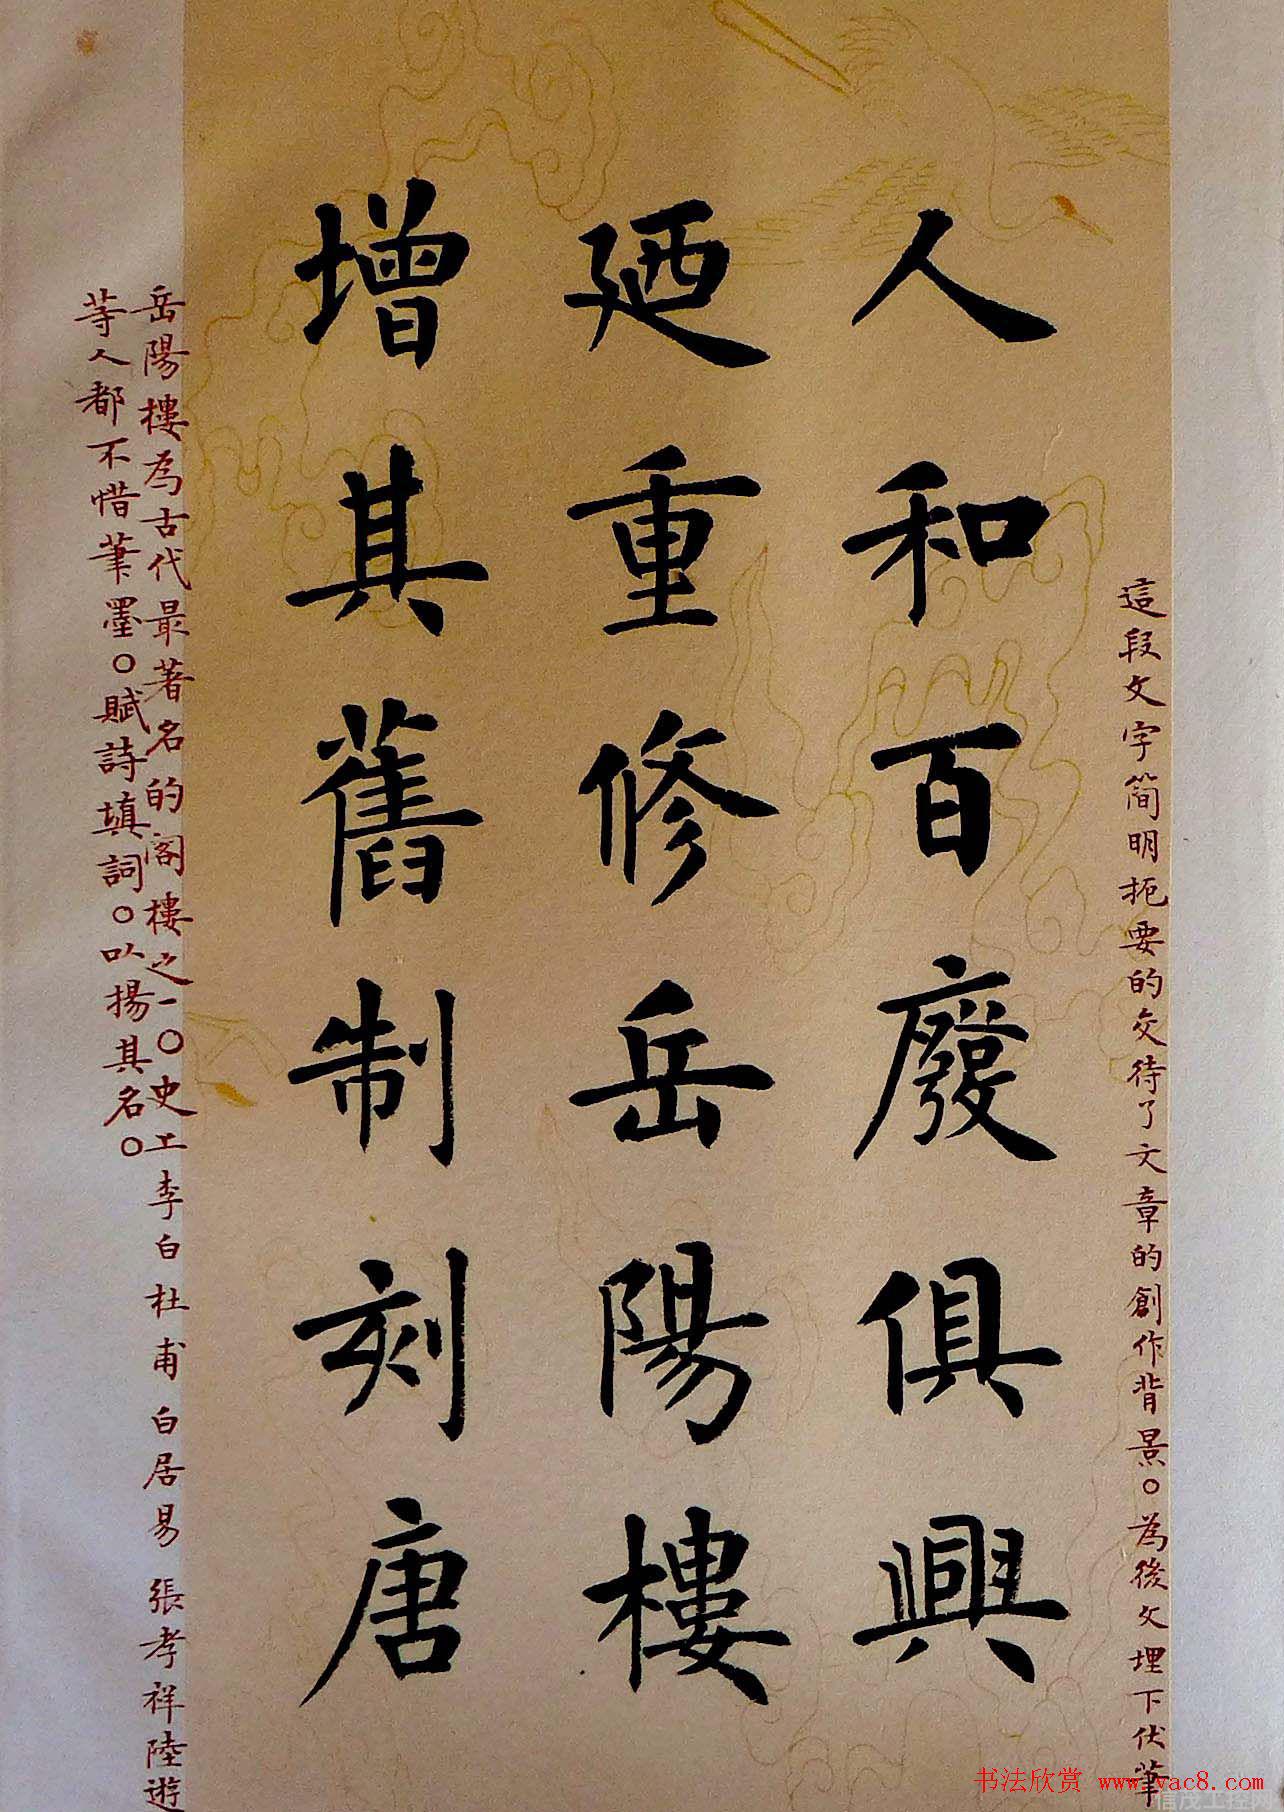 這段文字简明扼要的交待了文章的創作背景。為後文埋下伏筆
人和百廢俱興
廼重修岳陽樓
增其舊制刻唐
岳陽樓為古代最著名的阁樓之一。史上李白杜甫白居易張孝祥陸遊
等人都不惜筆墨。賦詩填詞。以揚其名。
书法欣赏 www.yac8.com
信茂工控网